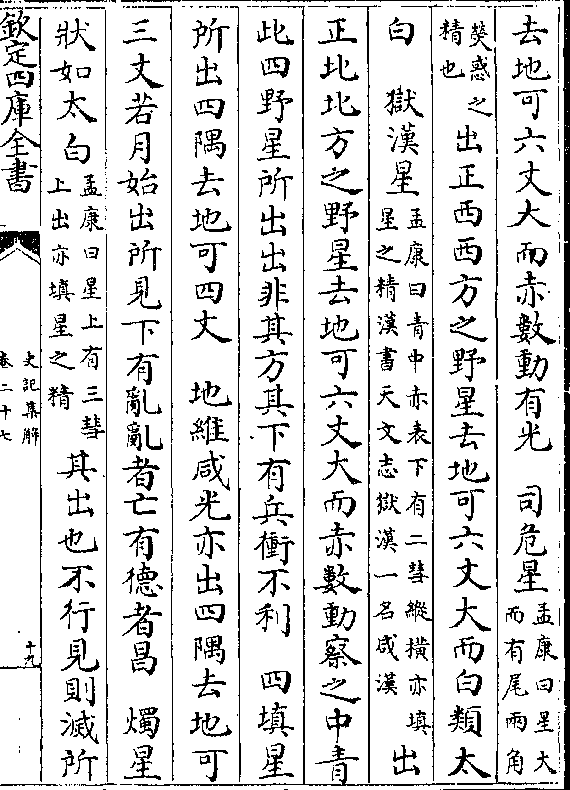 去地可六丈大而赤數動有光　司危星孟康曰星大而有尾兩角
熒惑之精也出正西西方之野星去地可六丈大而白類太
白　獄漢星孟康曰青中赤表下有二彗縱橫亦填星之精漢書天文志獄漢一名咸漢出
正北北方之野星去地可六丈大而赤數動察之中青
此四野星所出出非其方其下有兵衝不利　四填星
所出四隅去地可四丈　地維咸光亦出四隅去地可
三丈若月始出所見下有亂亂者亡有德者昌　燭星
狀如太白孟康曰星上有三彗上出亦填星之精其出也不行見則滅所
欽定四庫全書
史記集解
卷二十七
十九